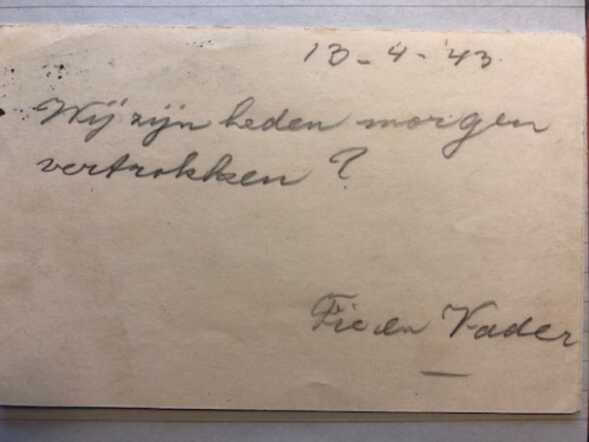 13-4-'43
Wij zijn heden morgen
vertrokken ?
Fie en Vader